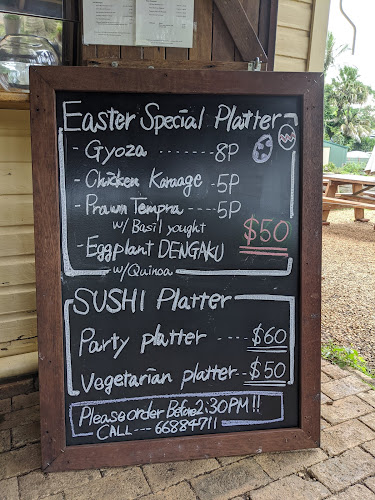 Easter Special Platter
- Gyoza ------- 8P
- Chicken Karaage - 5P
- Prawn Tempra ----- 5P
w/ Basil yought
- Eggplant DENGAKU
w/ Quinoa
$50
SUSHI Platter
Party platter ---- $60
Vegetarian platter --- $50
Please order Before 2:30PM!!
CALL --- 66884711